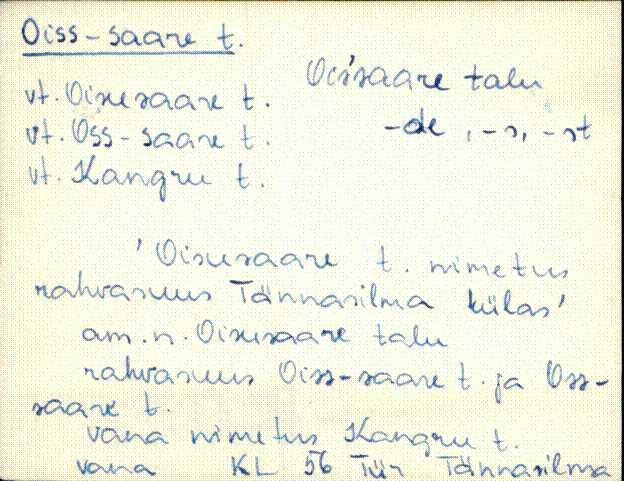 Oiss-saare t.
Ois'saare talu
vt. Oisusaare t.
vt. Oss-saare t.
-de, -s, -st
vt. Kangru t.
'Oisusaare t. nimetus
rahvasuus Tännasilma külas'
am. n. Oisusaare talu
rahvasuus Oiss-saare t. ja Oss-
saare t.
vana nimetus Kangru t.
vana KL 56 Tür Tännasilma